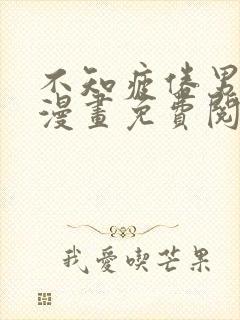 不知疲倦男
漫畫免費閱
我愛喫芒果